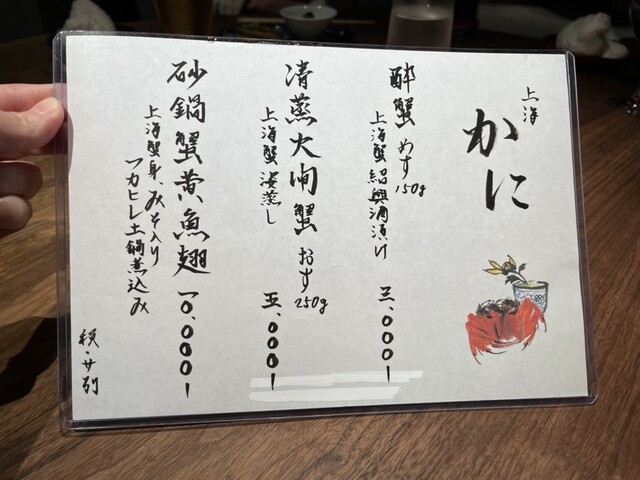 上海
かに
酔蟹 めす150g
上海蟹紹興酒漬け
三、〇〇〇ー
清蒸大闸蟹 おす250g
上海蟹姿蒸し
五、〇〇〇ー
砂鍋蟹黄魚翅
上海蟹身、みそ入り
フカヒレ土鍋煮込み
一〇、〇〇〇ー
税・サ別